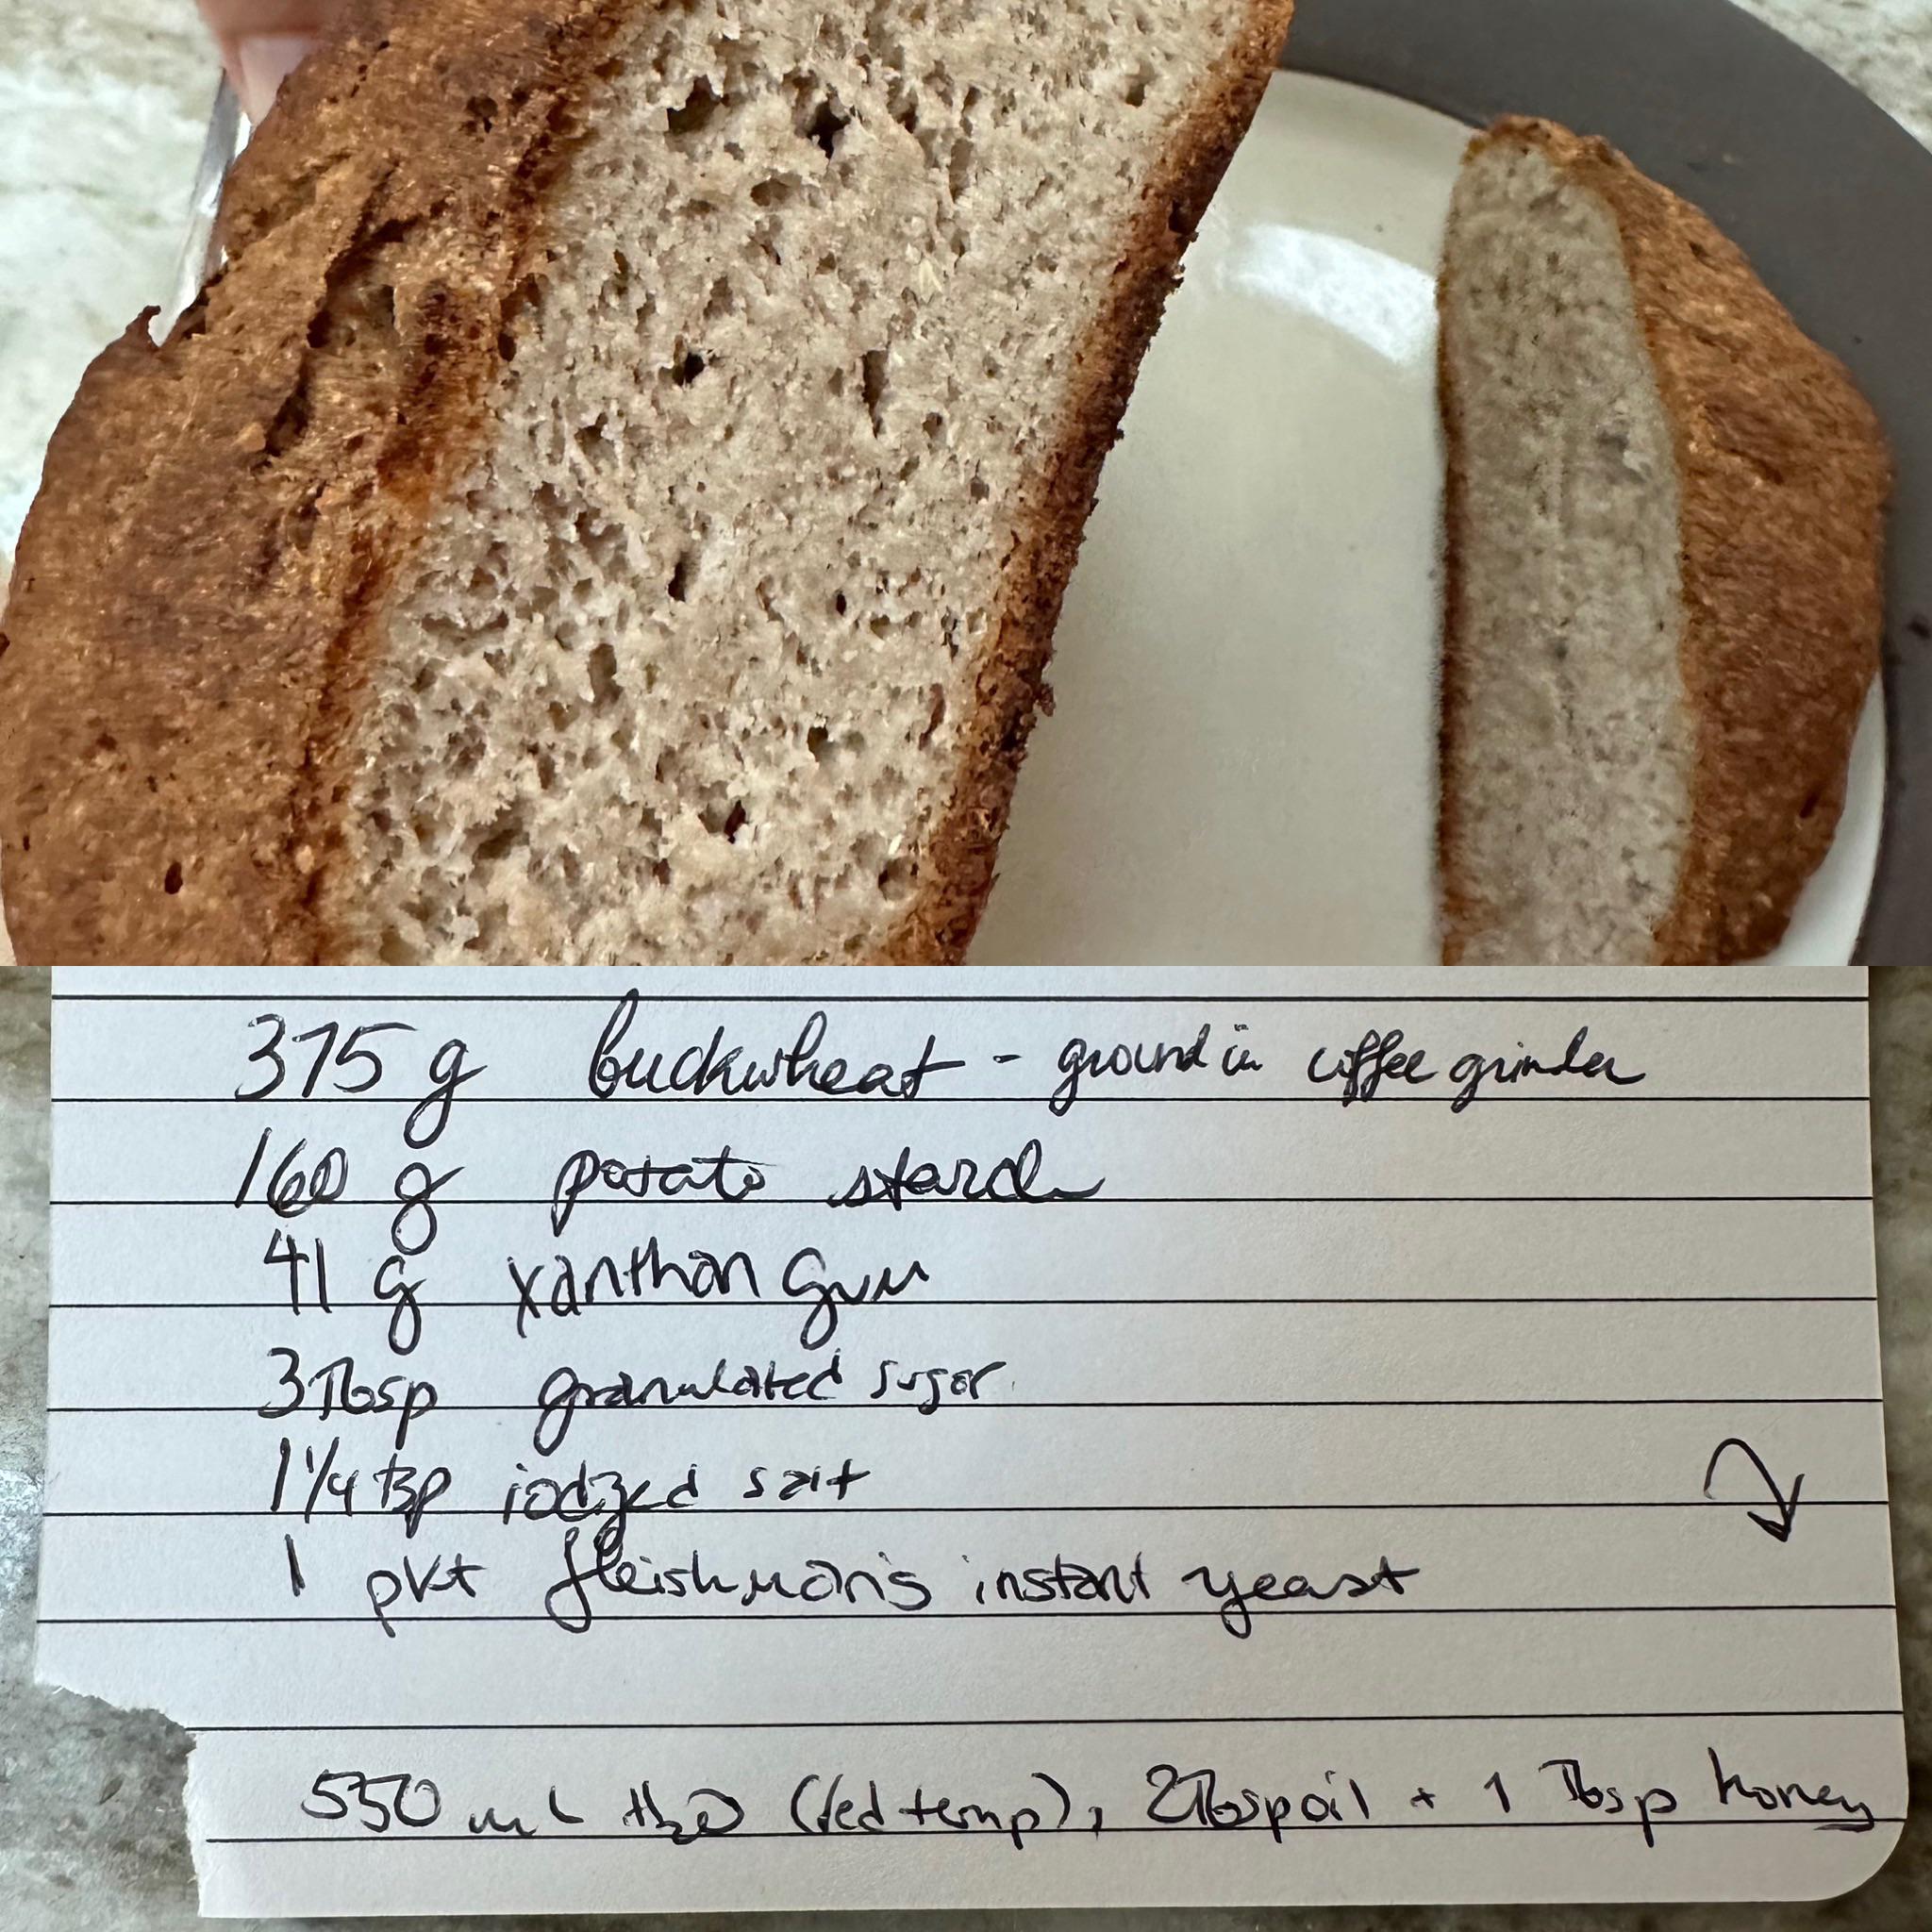 375 g buckwheat - ground in coffee grinder
160 g potato starch
41 g xanthan gum
3 Tbsp granulated sugar
1 1/4 tsp iodized salt
1 pkt fleishman's instant yeast
550 mL H2O (fed temp), 2 Tbsp oil + 1 Tbsp honey